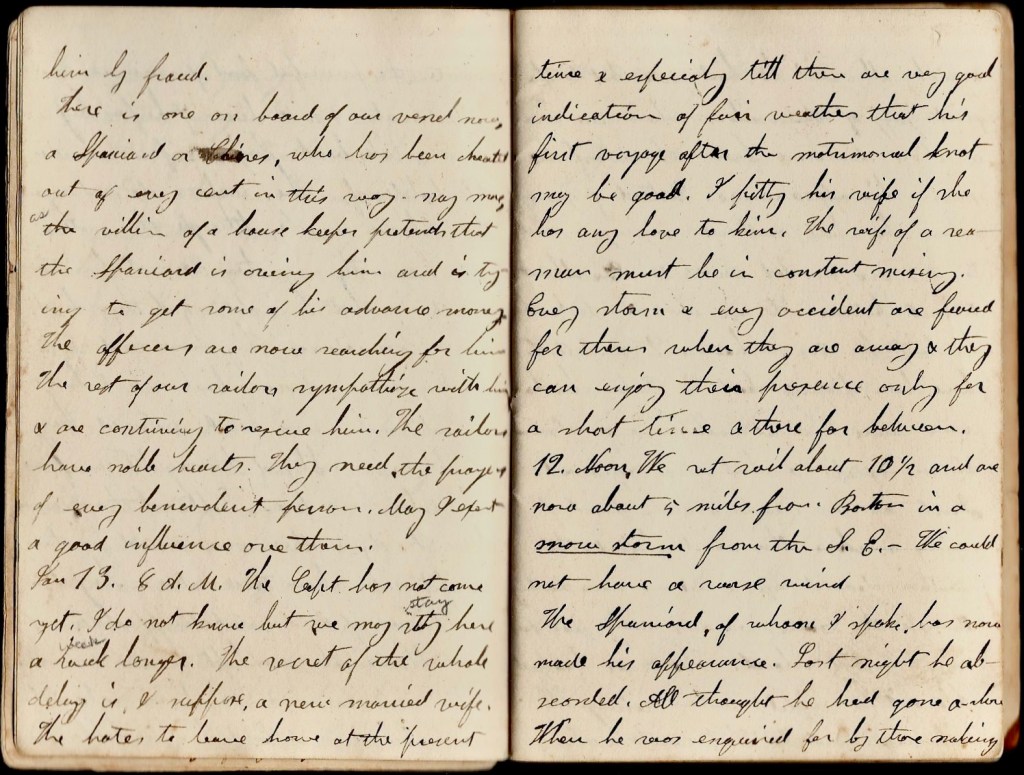 him by fraud.
There is one on board of our vessel now,
a Spaniard or Chines, who has been cheated
out of every cent in this way. nay more,
as the villin of a house keeper pretends that
the Spaniard is owing him and is try
ing to get some of his advance money.
The officers are now searching for him
The rest of our sailors sympathize with him
& are contriving to rescue him. The sailors
have noble hearts. They need the prayers
of every benevolent person. May I exert
a good influence over them.
Jan 13. 8 A.M. The Capt has not come
yet. I do not know but we may stay here
a week longer. The secret of the whole
delay is, I suppose, a new married wife.
The hates to leave home at the present
time & especialy till there are very good
indication of fair weather that his
first voyage after the matrimonial knot
may be good. I pitty his wife if she
has any love to him. The wife of a sea-
man must be in constant misery.
Every storm & every accident are feared
for them when they are away & they
can enjoy their presence only for
a short time & there far between.
12. Noon, We set sail about 10 1/2 and are
now about 5 miles from Boston in a
snow storm from the S. E. – We could
not have a worse wind
The Spaniard, of whom I spoke, has now
made his appearance. Last night he ab-
sconded. All thought he had gone a-shore
When he was enquired for by those making